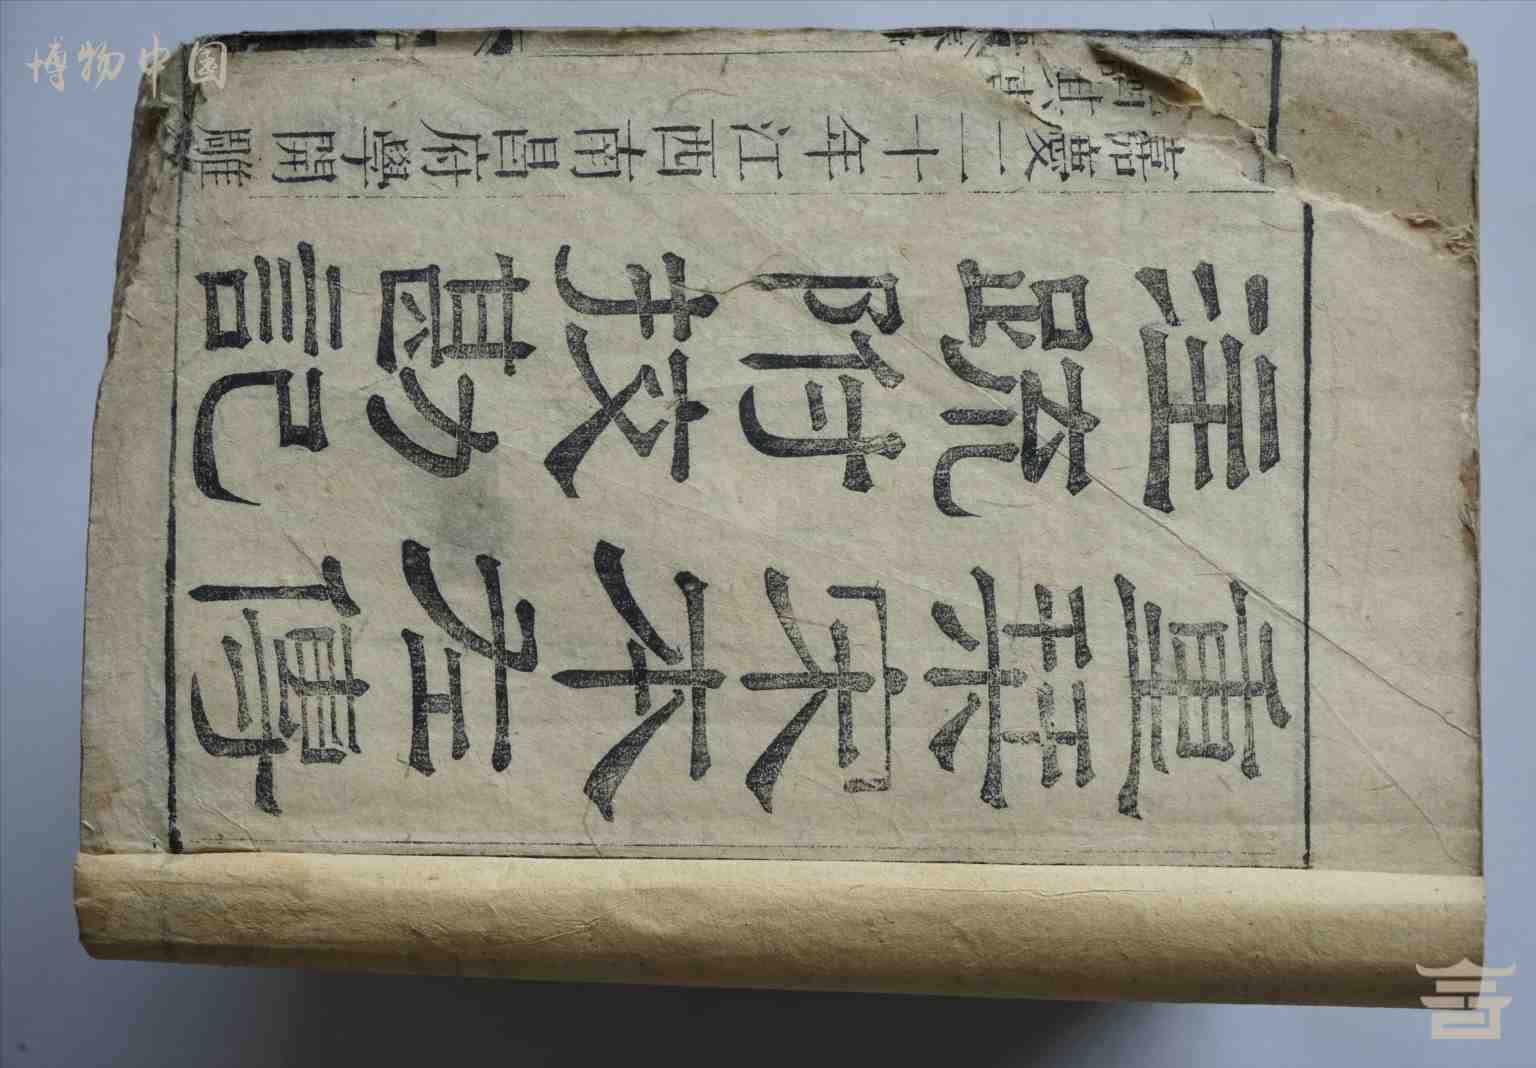 重栞宋本左傳
注疏附挍勘記
嘉慶二十年江西南昌府學開雕
博物中国